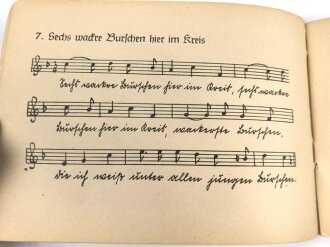 7. Sechs wackre Burschen hier im Kreis
Sechs wackre Burschen hier im Kreis, sechs wackre
Burschen hier im Kreis, wackerste Burschen,
die ich weiß unter allen jungen Burschen.